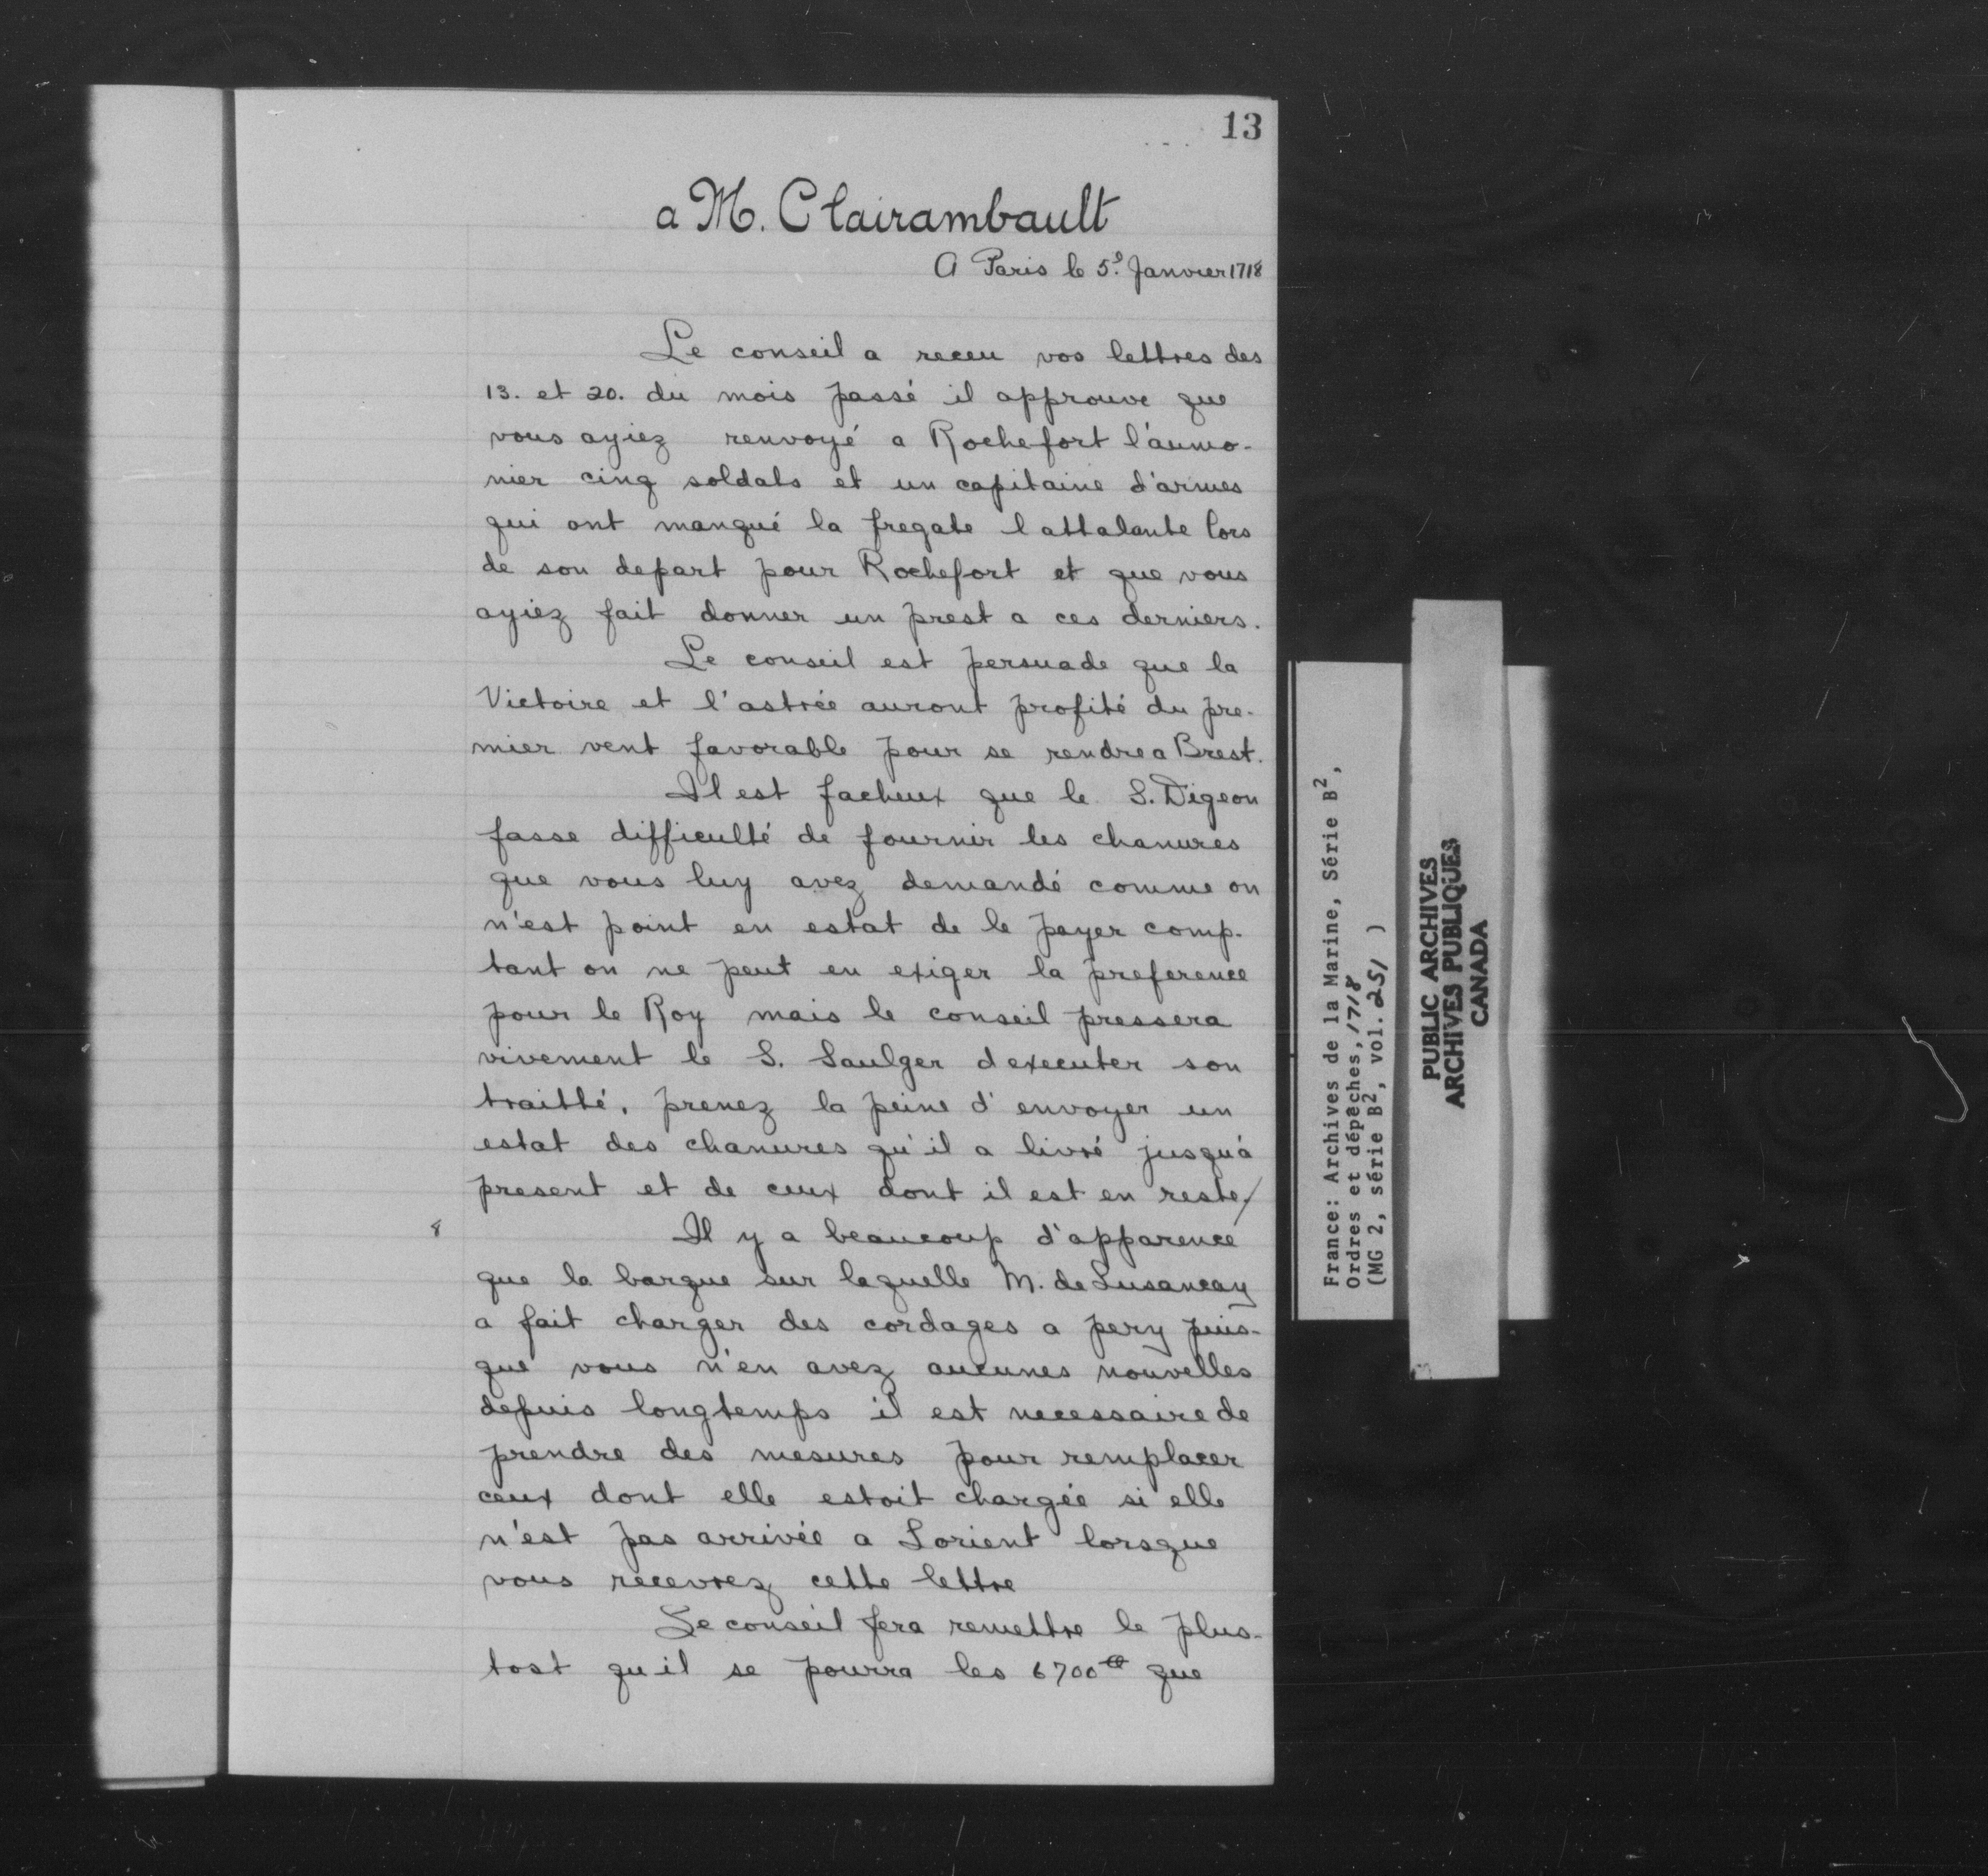 13
a M. Clairambault
A Paris le 5.e Janvier 1718
Le conseil a receu vos lettres des
13. et 20. du mois passé il approuve que
vous ayiez renvoyé a Rochefort l'aumo-
nier cinq soldats et un capitaine d'armes
qui ont manqué la fregate l attalante lors
de son depart pour Rochefort et que vous
ayiez fait donner un prest a ces derniers.
Le conseil est persuade que la
Victoire et l'astrée auront profité du pre-
mier vent favorable pour se rendre a Brest.
Il est facheux que le S. Digeon
fasse difficulté de fournir les chanvres
que vous luy avez demandé comme on
n'est point en estat de le payer comp-
tant on ne peut en exiger la preference
pour le Roy mais le conseil pressera
vivement le S. Saulger d executer son
traitté, prenez la peine d'envoyer un
estat des chanvres qu'il a livré jusqu'à
present et de ceux dont il est en reste/
8
Il y a beaucoup d'apparence
que la barque sur laquelle M. de Lusancay
a fait charger des cordages a pery puis-
que vous n'en avez aucunes nouvelles
depuis longtemps il est necessaire de
prendre des mesures pour remplacer
ceux dont elle estoit chargée si elle
n'est pas arrivée a Lorient lorsque
vous recevrez cette lettre
Le conseil fera remettre le plus-
tost qu il se pourra les 6700 que
France: Archives de la Marine, Série B2,
Ordres et dépêches, 1718
(MG 2, série B2, vol. 251 )
PUBLIC ARCHIVES
ARCHIVES PUBLIQUES
CANADA